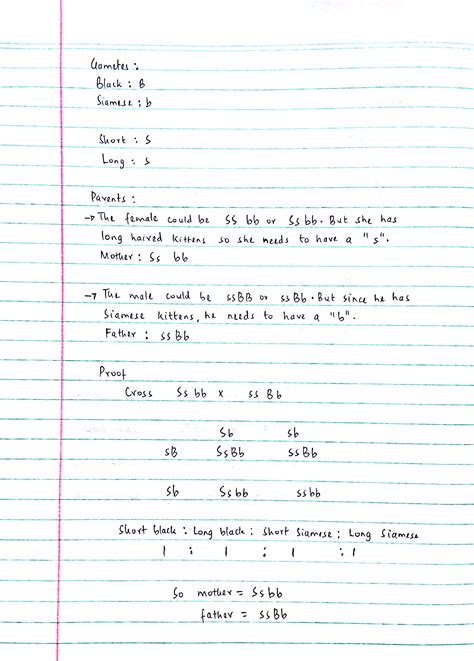 Gametes :
Black : B
Siamese : b
Short : S
Long : s
Parents :
→ The female could be SS bb or Ss bb. But she has
long haired kittens so she needs to have a "s".
Mother : Ss bb
→ The male could be ssBB or ssBb. But since he has
Siamese kittens, he needs to have a "b".
Father : ssBb
Proof
Cross Ss bb x ss Bb
Sb sb
sB SsBb ssBb
sb Ssbb ssbb
Short black : Long black : Short Siamese : Long Siamese
1 : 1 : 1 : 1
So mother = Ssbb
father = ssBb